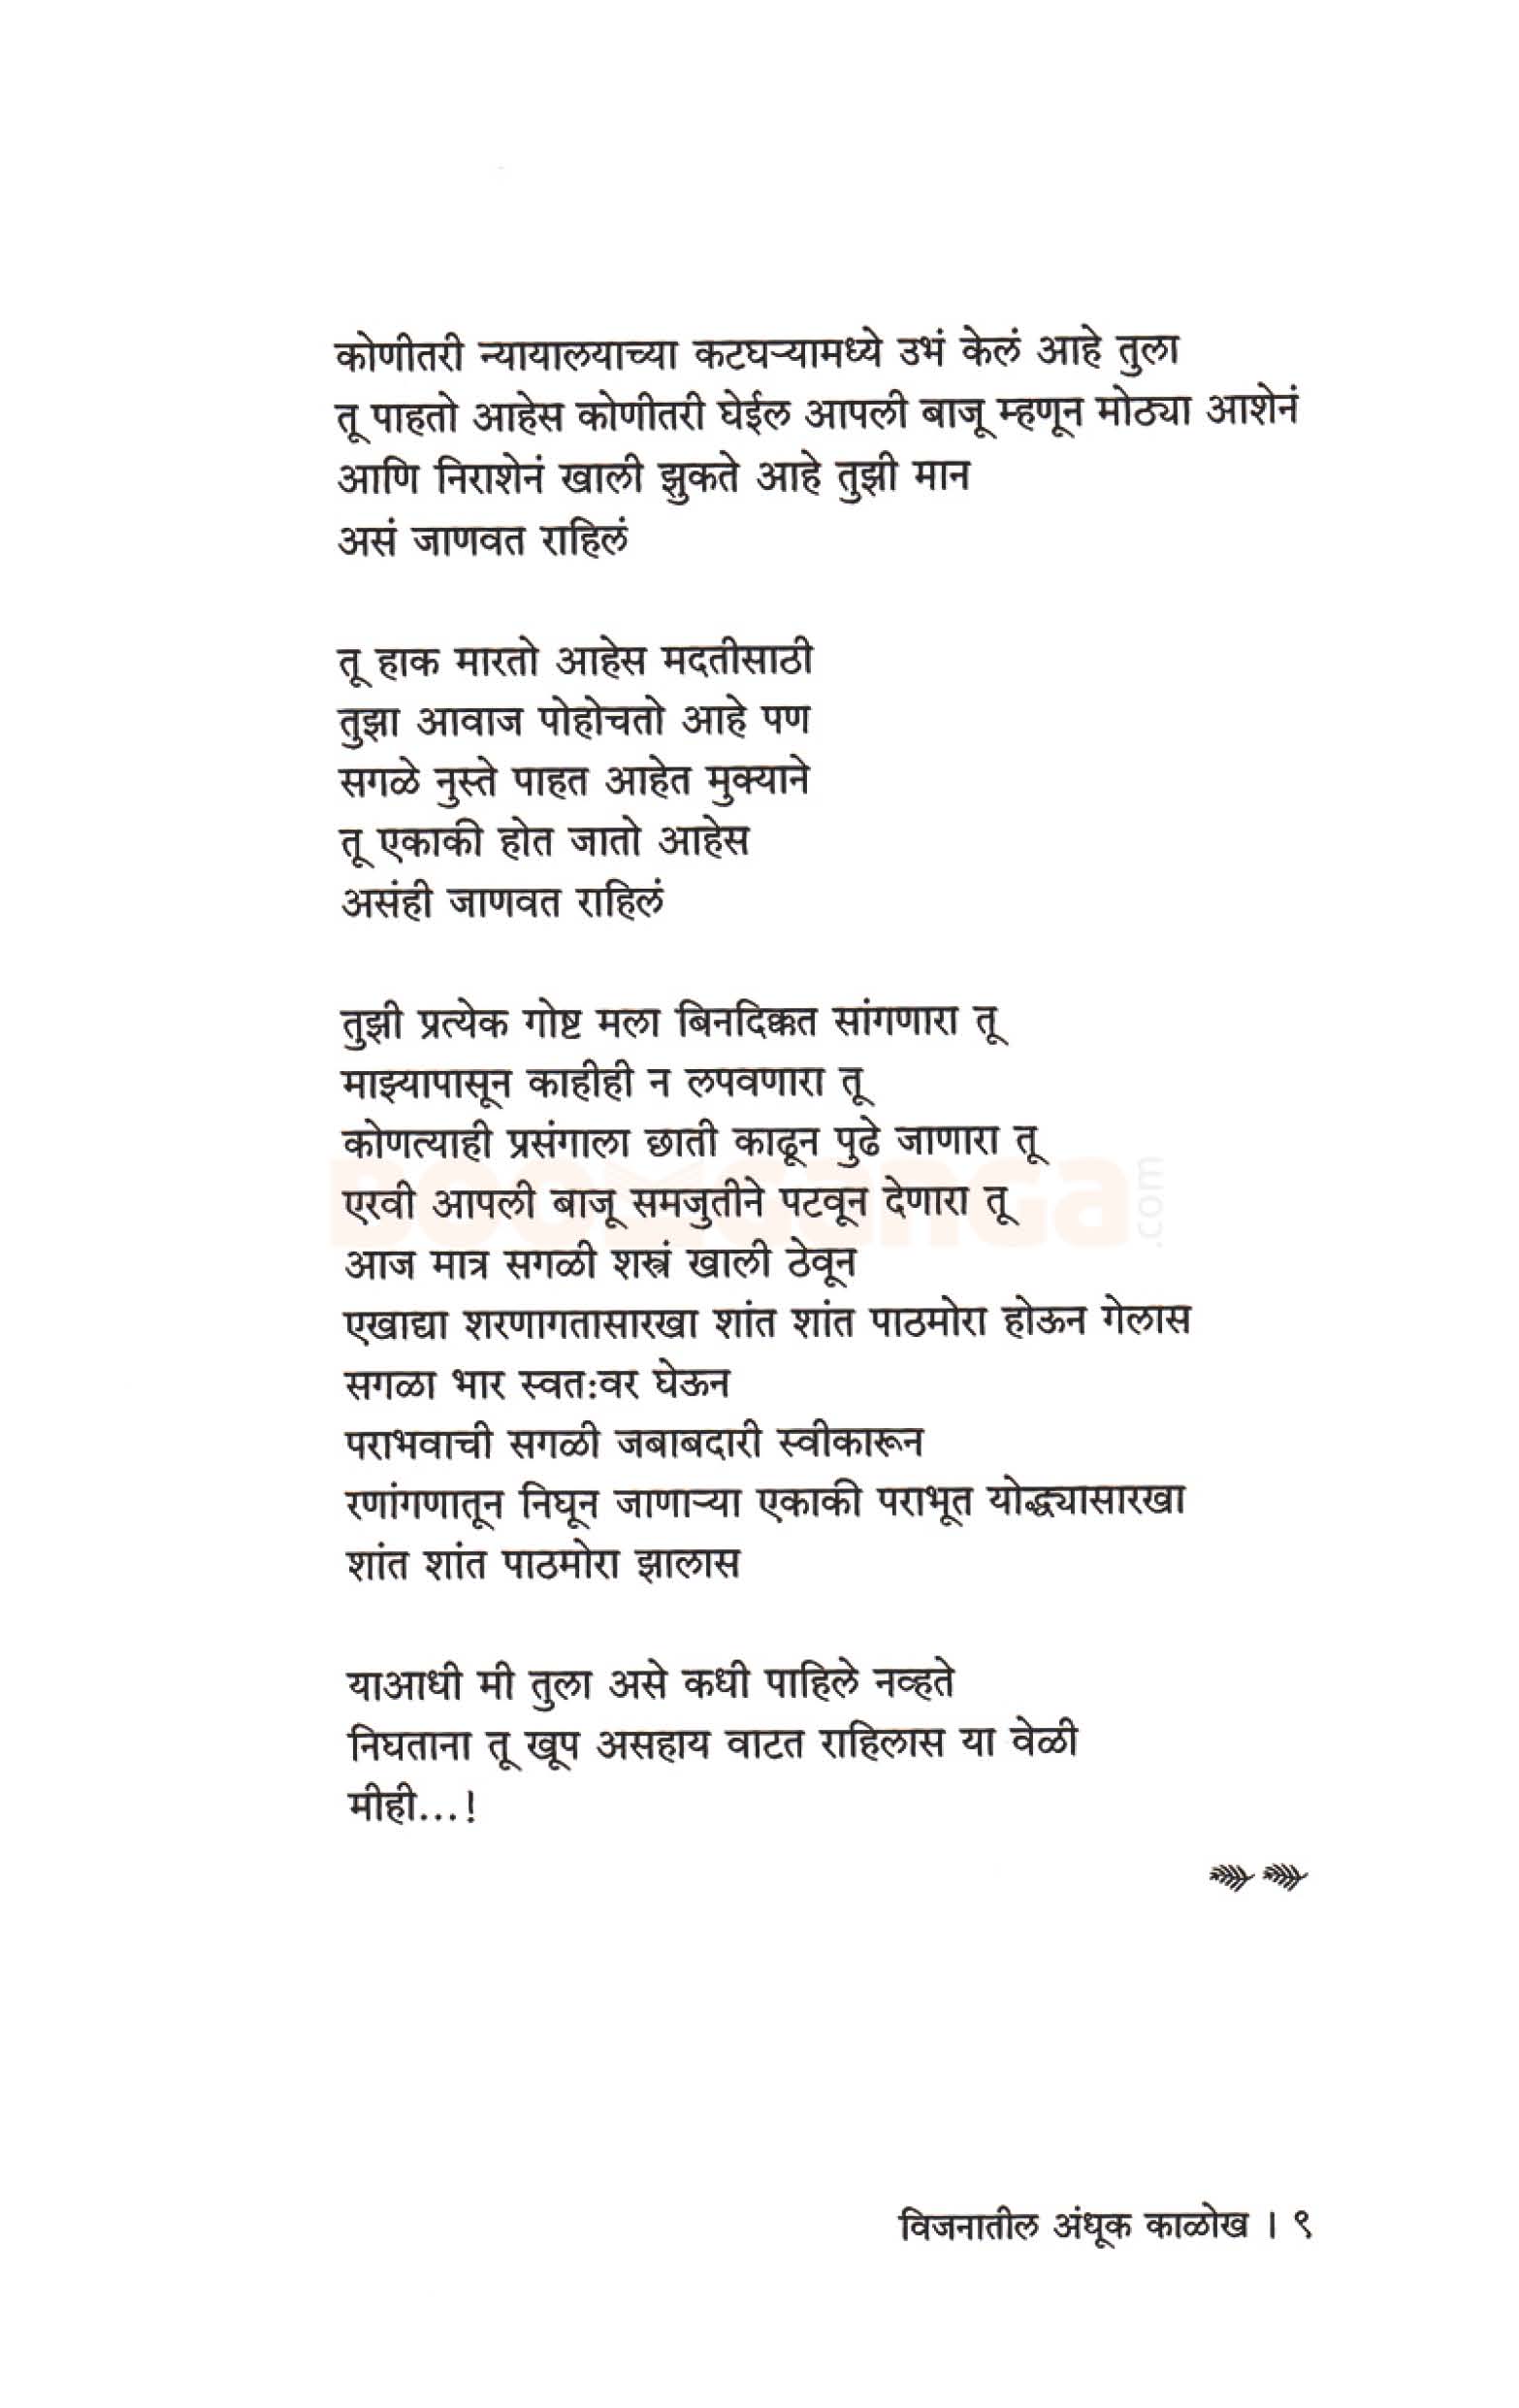 कोणीतरी न्यायालयाच्या कटघऱ्यामध्ये उभं केलं आहे तुला
तू पाहतो आहेस कोणीतरी घेईल आपली बाजू म्हणून मोठ्या आशेनं
आणि निराशेनं खाली झुकते आहे तुझी मान
असं जाणवत राहिलं

तू हाक मारतो आहेस मदतीसाठी
तुझा आवाज पोहोचतो आहे पण
सगळे नुस्ते पाहत आहेत मुक्याने
तू एकाकी होत जातो आहेस
असंही जाणवत राहिलं

तुझी प्रत्येक गोष्ट मला बिनदिक्कत सांगणारा तू
माझ्यापासून काहीही न लपवणारा तू
कोणत्याही प्रसंगाला छाती काढून पुढे जाणारा तू
एरवी आपली बाजू समजुतीने पटवून देणारा तू
आज मात्र सगळी शस्त्रं खाली ठेवून
एखाद्या शरणागतासारखा शांत शांत पाठमोरा होऊन गेलास
सगळा भार स्वत:वर घेऊन
पराभवाची सगळी जबाबदारी स्वीकारून
रणांगणातून निघून जाणाऱ्या एकाकी पराभूत योद्ध्यासारखा
शांत शांत पाठमोरा झालास

याआधी मी तुला असे कधी पाहिले नव्हते
निघताना तू खूप असहाय वाटत राहिलास या वेळी
मीही...!

विजनातील अंधूक काळोख । ९